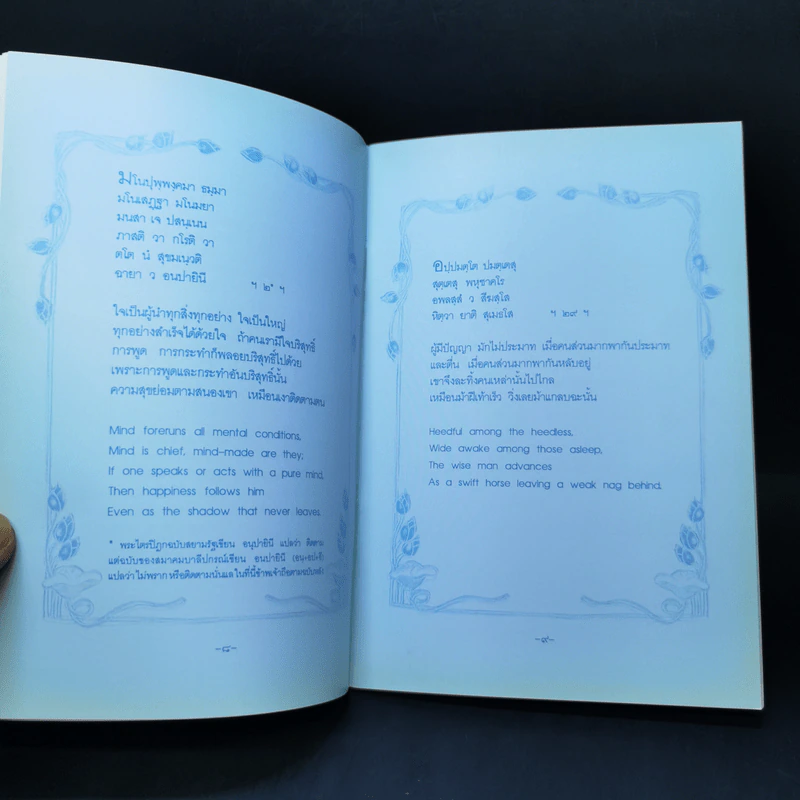 มโนปุพฺพงฺคมา ธมฺมา
มโนเสฏฺฐา มโนมยา
มนสา เจ ปสนฺเนน
ภาสติ วา กโรติ วา
ตโต นํ สุขมเนฺวติ
ฉายา ว อนปายินี ฯ ๒* ฯ
ใจเป็นผู้นำทุกสิ่งทุกอย่าง ใจเป็นใหญ่
ทุกอย่างสำเร็จได้ด้วยใจ ถ้าคนเรามีใจบริสุทธิ์
การพูด การกระทำก็พลอยบริสุทธิ์ไปด้วย
เพราะการพูดและกระทำอันบริสุทธิ์นั้น
ความสุขย่อมตามสนองเขา เหมือนเงาติดตามตน
Mind foreruns all mental conditions,
Mind is chief, mind-made are they;
If one speaks or acts with a pure mind,
Then happiness follows him
Even as the shadow that never leaves.
* พระไตรปิฎกฉบับสยามรัฐเขียน อนุปายินี แปลว่า ติดตาม
แต่ฉบับของสมาคมบาลีปกรณ์เขียน อนปายินี
แปลว่า ไม่พราก หรือติดตามนั่นแล ในที่นี้ข้าพเจ้าถือตามฉบับหลัง
-๘-
อปฺปมตฺโต ปมตฺเตสุ
สุตฺเตสุ พหุชาคโร
อพลสฺสํ ว สีฆสฺโส
หิตฺวา ยาติ สุเมธโส ฯ ๒๙ ฯ
ผู้มีปัญญา มักไม่ประมาท เมื่อคนส่วนมากพากันประมาท
และตื่น เมื่อคนส่วนมากพากันหลับอยู่
เขาจึงละทิ้งคนเหล่านั้นไปไกล
เหมือนม้าฝีเท้าเร็ว วิ่งเลยม้าแกลบฉะนั้น
Heedful among the heedless,
Wide awake among those asleep,
The wise man advances
As a swift horse leaving a weak nag behind.
-๙-